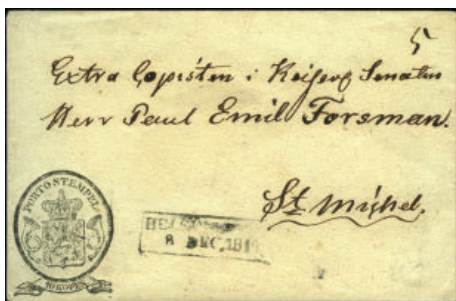 5
Extra Copisten i Keiserl Senaten
Herr Paul Emil Forsman.
St Michel.
PORTO STEMPEL
10 KOPEK
8 DEC, 18